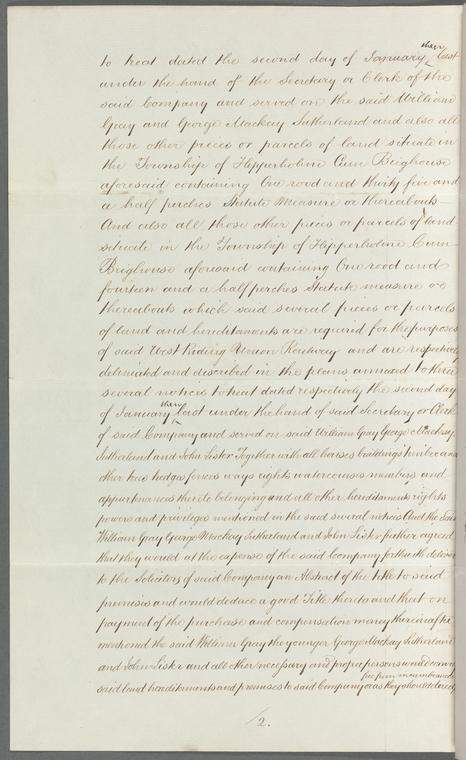 to treat dated the second day of January then last
under the hand of the Secretary or Clerk of the
said Company and served on the said William
Gray and George Mackay Sutherland and also all
those other pieces or parcels of land situate in
the Township of Hipperholme Cum Brighouse
aforesaid containing One rood and thirty five and
a half perches Statute Measure or thereabouts
And also all those other pieces or parcels of land
situate in the Township of Hipperholme Cum
Brighouse aforesaid containing One rood and
fourteen and a half perches Statute measure or
thereabouts which said several pieces or parcels
of land and hereditaments are required for the purposes
of said West Riding Union Railway and are respectively
delineated and described in the plans annexed to three
several notices to treat dated respectively the second day
of January then last under the hand of said Secretary or Clerk
of said Company and served on said William Gray George Mackay
Sutherland and John Lister Together with all houses buildings timber and
other trees hedges fences ways rights watercourses members and
appurtenances thereto belonging and all other hereditaments rights
powers and privileges mentioned in the said several notices And the said
William Gray George Mackay Sutherland and John Lister further agreed
that they would at the expense of the said Company forthwith deliver
to the Solicitors of said Company an Abstract of the title to said
premises and would deduce a good Title thereto and that on
payment of the purchase and compensation money thereinafter
mentioned the said William Gray the younger George Mackay Sutherland
and John Lister and all other necessary and proper persons would convey
said land hereditaments and premises free from incumbrances to said Company or as they should direct
2.